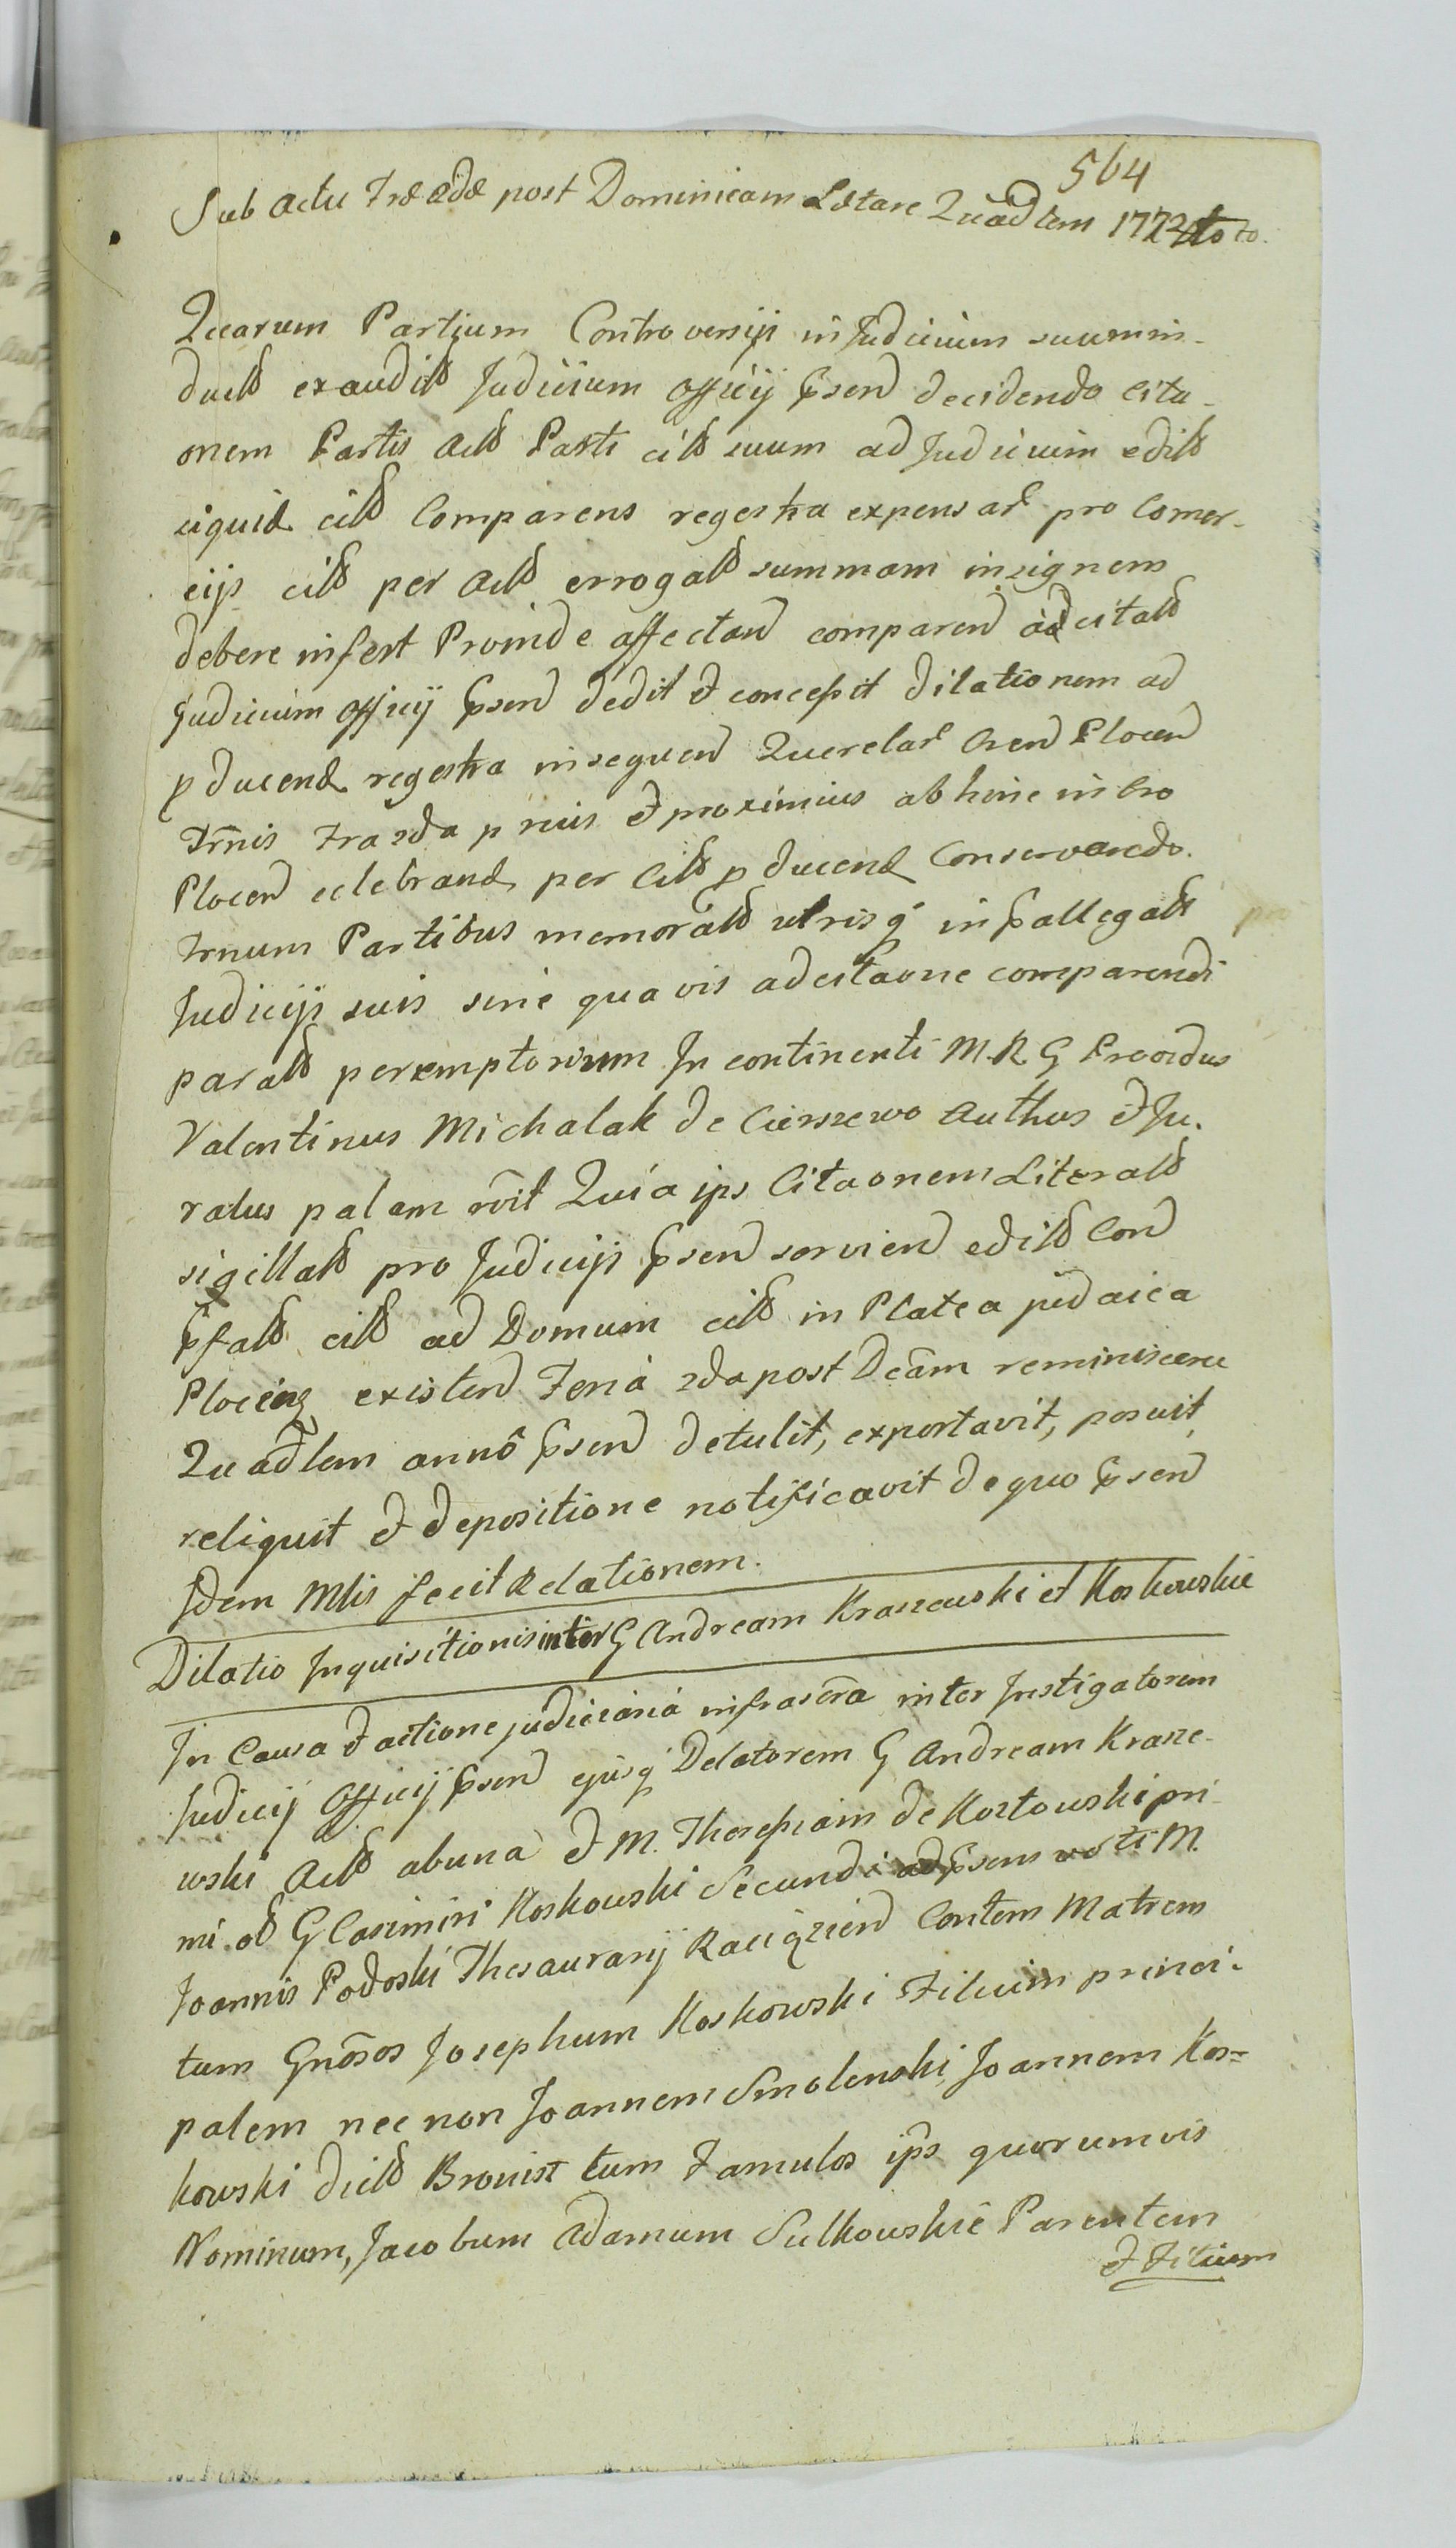 564
Sub actu Fræ 2dæ post Dominicam Lætare Quadlem 1772do
Quarum Partium Controversijs in Judicium suum in-
duct exaudit Judicium Officij Pnsens decidendo Cita-
onem Partis Act Parti cit suum ad Judicium edit
cit Comparens regestra expensar pro Comer-
cijs cit per Act errogat summam insignem
debere infert Proinde affectand comparend ad citat
Judicium Officij Pnsens dedit et concessit dilationem ad
producend regestra in sequen Querelar Cren Plocen
Trmis Fra 2da prius et proximius ab hinc in Cro
Plocen celebrand per Cit producend Conservando.
Trnum Partibus memorat utrisq in Pallegat
Judicijs suis sine quavis adcitaone comparendi
parat peremptorium In continenti M. R. G Provdus
Valentinus Michalak de Cierszewo Authus et Ju-
ratus palam rvit Quia ips Citaonem Literat
sigillat pro Judicijs Pnsens servien edit Con
Pfat cit ad Domum cit in Platea judaica
existen Feria 2da post Dcam reminiscere
Quadlem anno Pnsen detulit, exportavit, posuit,
reliquit et depositione notificavit de quo Pnsen
Idem Mlis fecit Relationem.
Dilatio Inquisitionis inter G Andream Kraszewski et Koskowskie
In Causa et actione judiciaria infrascra inter Instigatorem
Judicij Officij Pnsen ejusq Delatorem G Andream Krasze-
wski Act ab una et M. Theressiam de Koztowski pri-
mi ol G Casimiri Koskowski Secundi Pnsens voti M.
Joannis Podoski Thesaurarij Raciązien Contem Matrem
tum Gnosos Josephum Koskowski Filium princi-
palem nec non Joannem Smolenski, Joannem Kos=
kowski dict Brouist tum Famulos ips quorumvis
Nominum, Jacobum Adamum Sulkowskie Parentem
et Filium